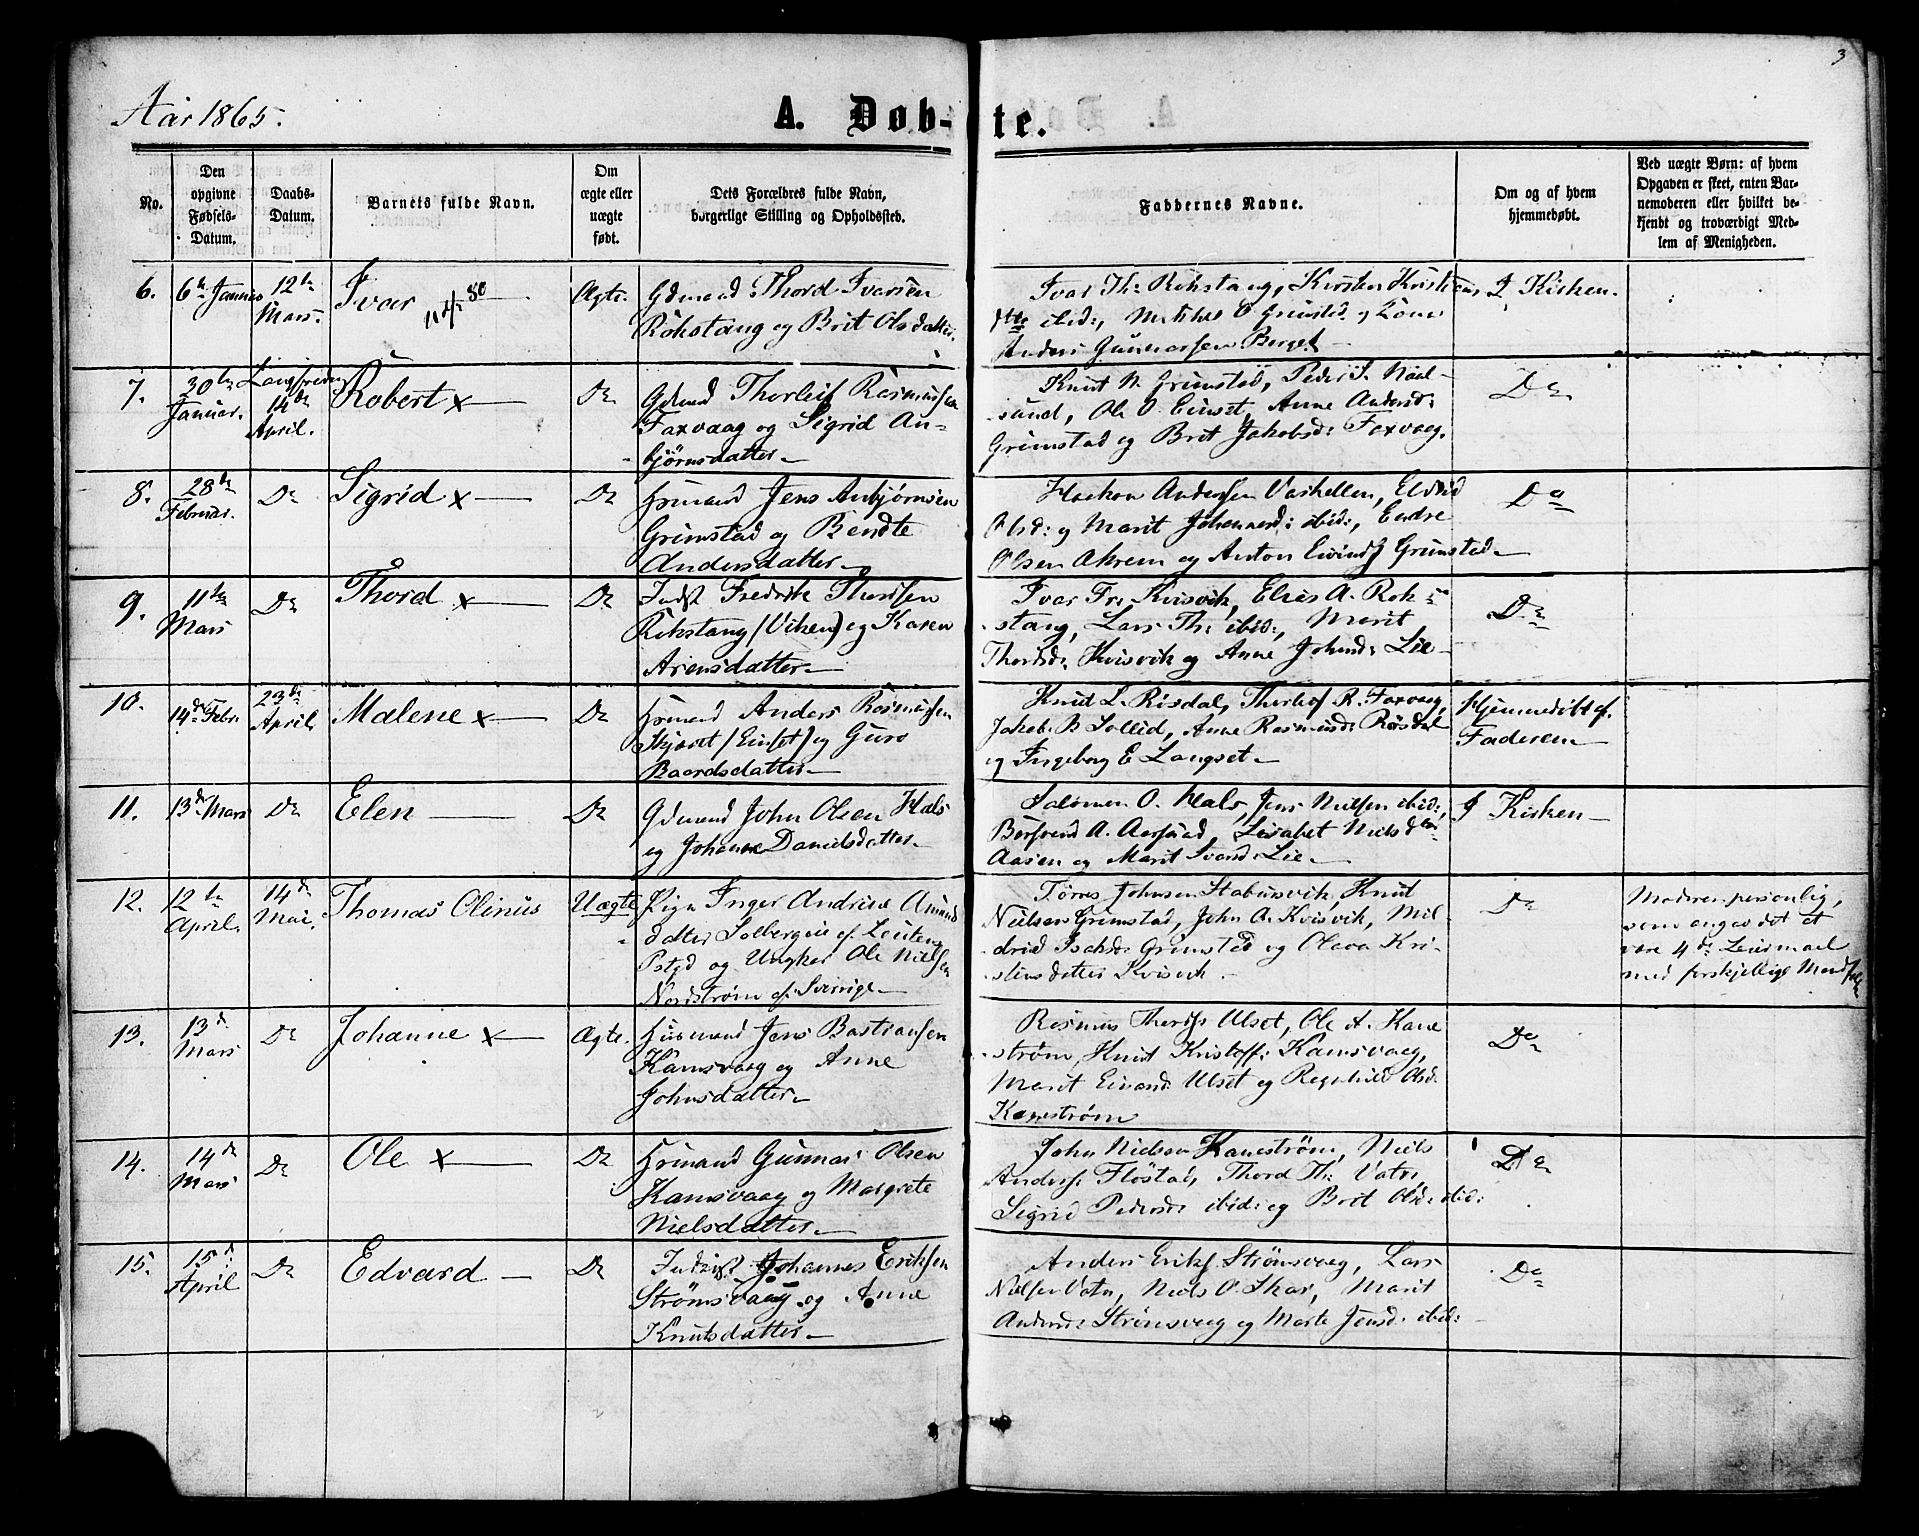 3
Aar 1865.
A. Døb-te.
No.
Den opgivne Fødsels-Datum.
Daabs-Datum.
Barnets fulde Navn.
Om ægte eller uægte født.
Dets Forældres fulde Navn, borgerlige Stilling og Opholdssted.
Faddernes Navne.
Om og af hvem hjemmedøbt.
Ved uægte Børn: af hvem Opgaven er skeet, enten Barnemoderen eller hvilket bekjendt og troværdigt Medlem af Menigheden.
6. 6te Januar 12te Mars. Ivar Ægte.
Gdmand Thord Ivarsen
Rokstang og Brit Olsdatter.
Ivar Th: Rokstang, Kirsten Kristians
dtr ibid:, O Grimstad og
Anders Gunnarsen Berget
I Kirken.
7. 30te Januar. Langfredag 14de April. Robert x Do
Gdmand Thorleif Rasmussen
Foxvaag og Sigrid An-
bjørnsdatter
Knut N. Grimstad, Peder S. Naal-
sund, Ole O. Einset, Anne Andersd:
Grimstad og Brit Jakobsd: Foxvaag.
Do
8. 28de Februar. Do Sigrid x Do
Husmand Jens Anbjørnsen
Grimstad og Bendte
Andersdatter
Haakon Andersen Vashellen,
Olsd: og Marit Johannesd: ibid:, Endre
Olsen Akrem og Anton Grimstad
Do
9. 11te Mars Do Thord x Do
Inds: Fredrik Thordsen
Rokstang (Viken) og Karen
Arensdatter
Ivar Fr: Kvisvik, Elias A. Rok-
stang, Lars Th: ibid:, Marit
Thordsd: Kvisvik og Anne Johnsd: Lie
Do
10. 14de Febr: 23de April. Malene x Do
Husmand Anders Rasmussen
Skjæret (Einset) og Guro
Baardsdatter
Knud L. Risdal, Thorlof R. Foxvaag,
Jakob B Sollid, Anne Rasmusd: Røsdal
og Ingeborg E Langset
Hjemmedøbt af
Faderen
11. 13de Mars Do Elen Do
Gdmand John Olsen Hals
og Johanne Danielsdatter
Salomon O. Hals, Jens Nielsen ibid:,
A. Aasprad, Lisabet Nielsdtr
Aasen og Marit Ivarsd: Lie
I Kirken
12. 12te April. 14de Mai. Thomas Olinus Uægte
Pige Inger Andrine Amund
datter Solbergeie af
og Ungkar Ole Nielsen
Nordstrøm af Sverrige
Tøres Johnsen Stabursvik, Knut
Nielsen Grimstad, John A. Kvisvik, Mil-
drid Isaksd: Grimstad og Olava Kri-
stensdatter Kvisvik
Do
Moderen personlig,
som angav det at
være 4de Leiermaal
med forskjellige Mandfolk
13. 13de Mars Do Johanne x Ægte.
Husmand Jens Bastiansen
Kamsvaag og Anne
Johnsdatter
Rasmus Thords: Ulset, Ole A. Kane
strøm, Knut Kristoff: Kamsvaag,
Marit Eivands Ulset og Regnhild Olsd:
Kanestrøm
Do
14. 14de Mars Do Ole x Do
Husmand Gunnar Olsen
Kamsvaag og Margrete
Nielsdatter
John Nielsen Kanestrøm, Niels
Anders: Flöstad, Thord Th: Vatn,
Sigrid Pedersd: ibid: og Brit Olsd: ibid:
Do
15. 15de April Do Edvard Do
Inderst Johannes Eriksen
Strømsvaag og Anne
Knutsdatter
Anders Eriks: Strømsvaag, Lars
Nielsen Vatn, Niels O. Skar, Marit
Andersd: Strömsvaag og Marte Jensd: ibid:
Do